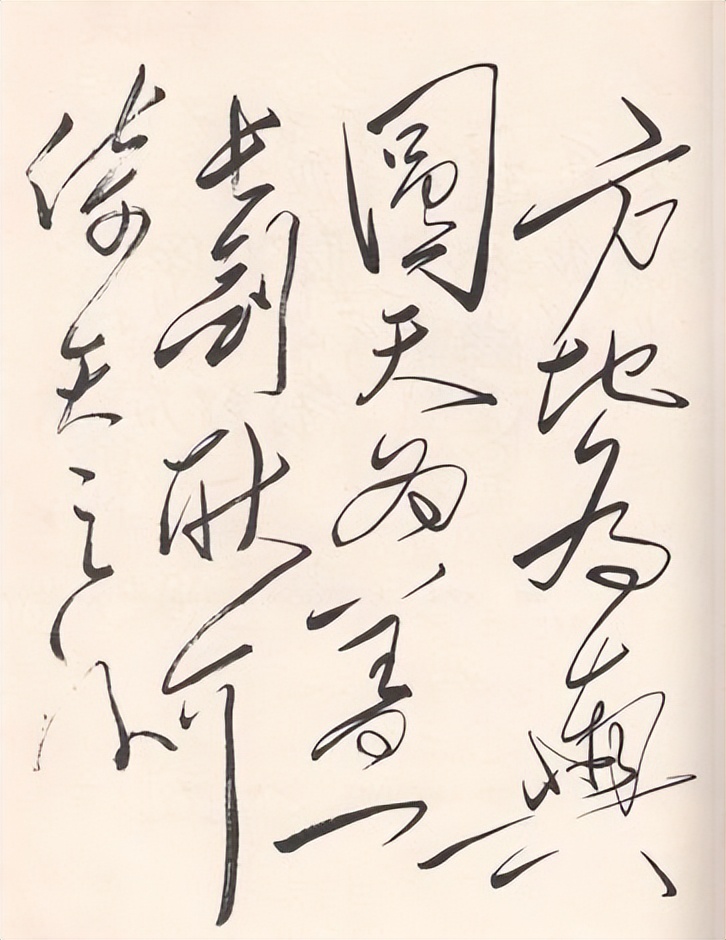 方地为舆
圆天为盖
长剑耿介
倚天之外